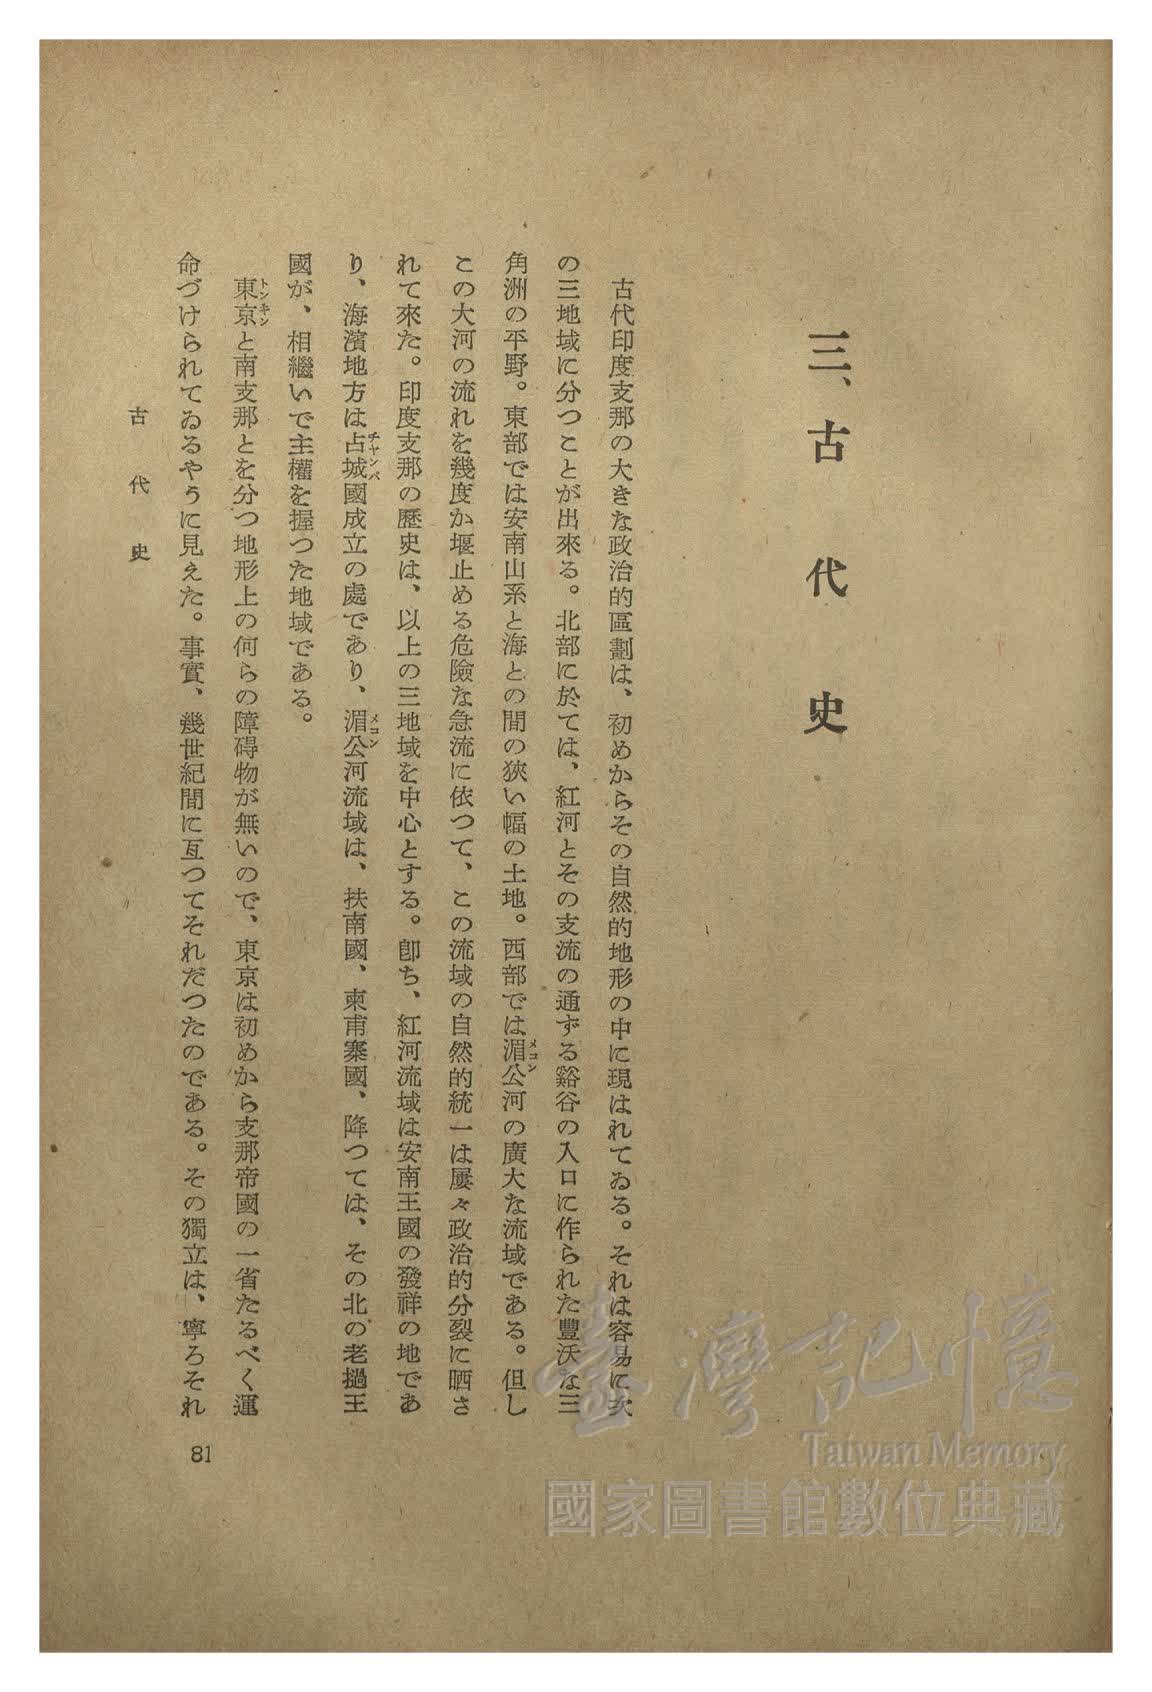 三、古代史
古代印度支那の大きな政治的區劃は、初めからその自然的地形の中に現はれてゐる。それは容易に次
の三地域に分つことが出來る。北部に於ては、紅河とその支流の通ずる谿谷の入口に作られた豐沃な三
角洲の平野。東部では安南山系と海との間の狹い幅の土地。西部では湄公河の廣大な流域である。但し
メコン
この大河の流れを幾度か堰止める危險な急流に依つて、この流域の自然的統一は屢々政治的分裂に晒さ
れて來た。印度支那の歷史は、以上の三地域を中心とする。卽ち、紅河流域は安南王國の發祥の地であ
り、海濱地方は占城國成立の處であり、湄公河流域は、扶南國、柬甫寨國、降つては、その北の老撾王
チヤンパ
メコン
國が、相繼いで主權を握つた地域である。
東京と南支那とを分つ地形上の何らの障碍物が無いので、東京は初めから支那帝國の一省たるべく運
トンキン
命づけられてゐるやうに見えた。事實、幾世紀間に亙つてそれだつたのである。その獨立は、寧ろそれ
古代史
81
臺灣記憶
Taiwan Memory
國家圖書館數位典藏